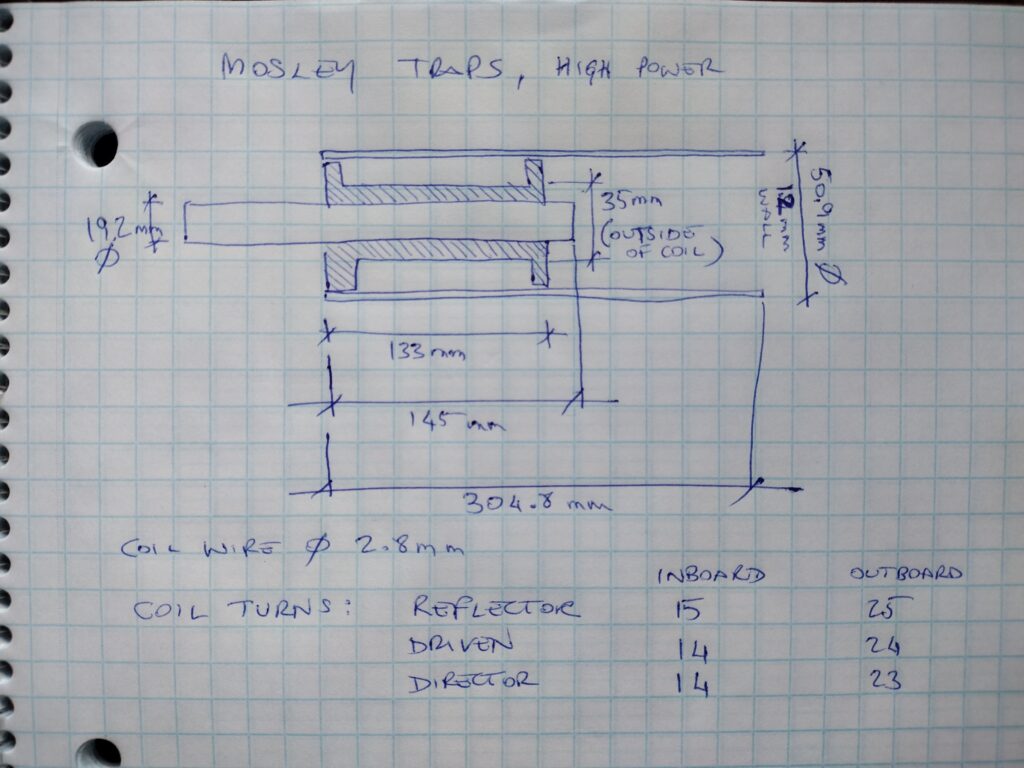 MOSLEY TRAPS, HIGH POWER
19.2 mm
Ø
35mm
(OUTSIDE
OF COIL)
mm
WALL
50,9 mm Ø
133mm
145 mm
304.8 mm
COIL WIRE Ø 2.8mm
INBOARD OUTBOARD
COIL TURNS: REFLECTOR 15 25
DRIVEN 14 24
DIRECTOR 14 23